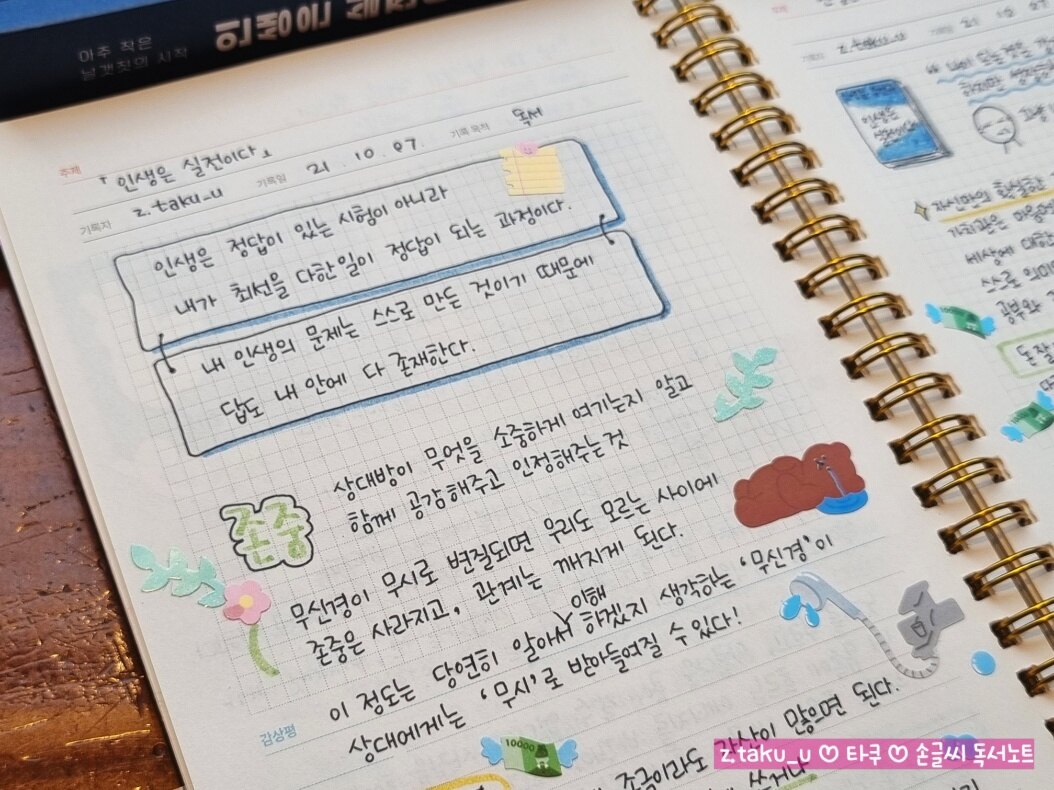 아주 작은
날갯짓의 시작
인생은 실전
주제 「인생은 실전이다」
기록자 z.taku_u 기록일 21. 10. 07. 기록 목적 독서
인생은 정답이 있는 시험이 아니라
내가 최선을 다한일이 정답이 되는 과정이다.
내 인생의 문제는 스스로 만든 것이기 때문에
답도 내 안에 다 존재한다.
존중
상대방이 무엇을 소중하게 여기는지 알고
함께 공감해주고 인정해주는 것
무신경이 무시로 변질되면 우리도 모르는 사이에
존중은 사라지고, 관계는 깨지게 된다.
이해
이 정도는 당연히 알아서 하겠지 생각하는 '무신경'이
감상평 상대에게는 '무시'로 받아들여질 수 있다!
10000
조금이라도 자산이 많으면 된다.
주제
기록자 z.taku_u
인생은
실전이다
자신만의
가치관은 마음
세상에 대한
스스로 의미
공부와
돈
z.taku_u ♡ 타쿠 ♡ 손글씨 독서노트